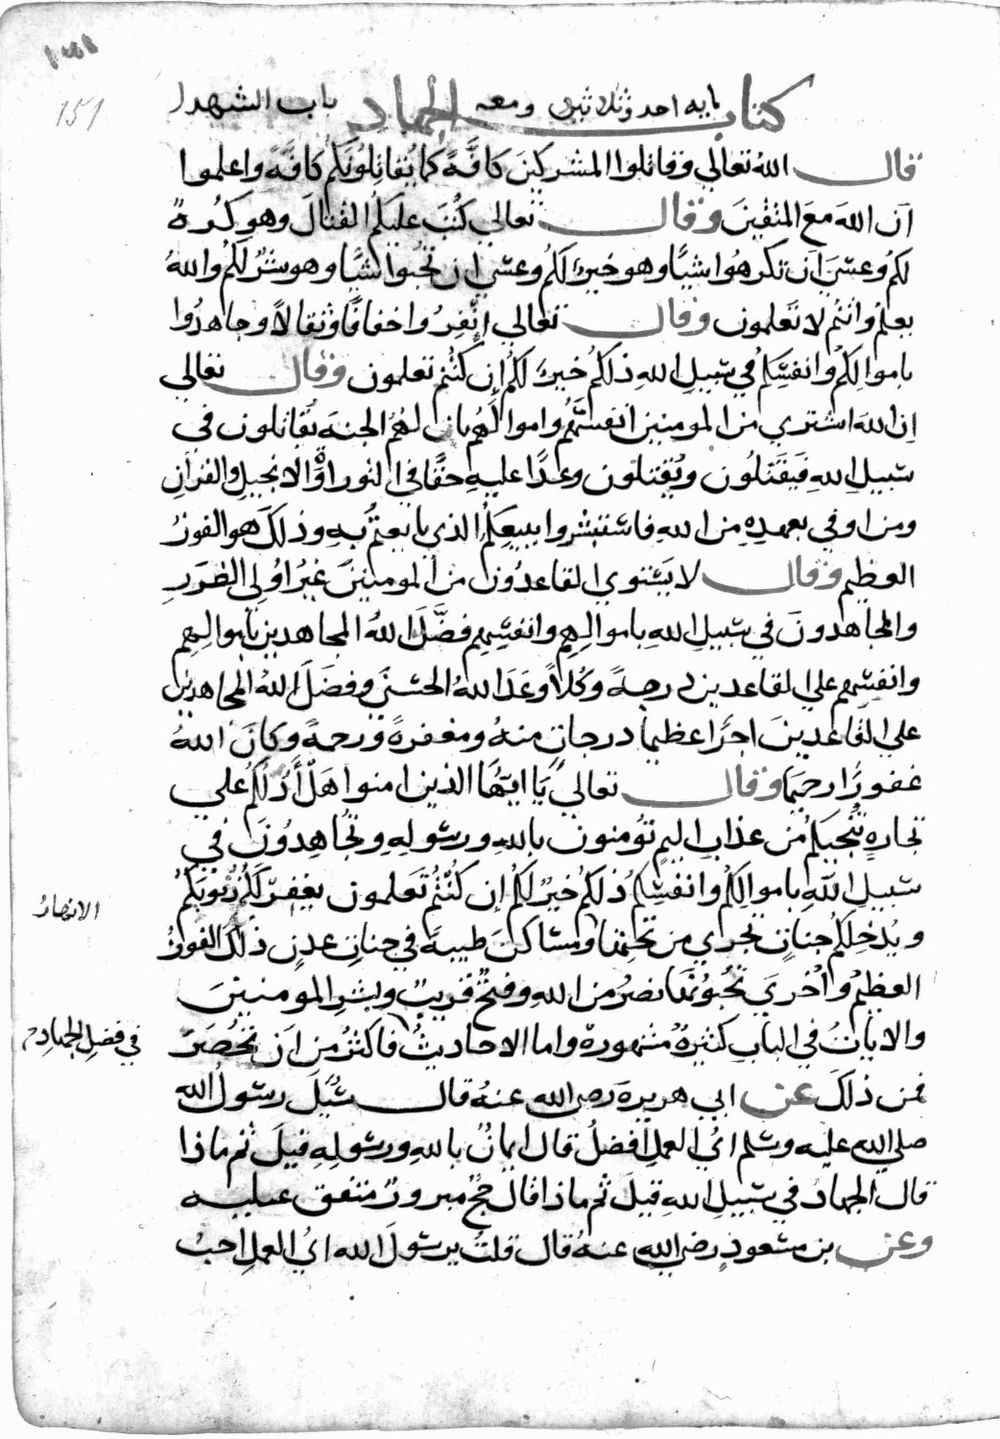 151
كتاب الجهاد بابه احد وثلاثين ومعه باب الشهدا
قال الله تعالي وقاتلوا المشركين كافَّةً كما يُقاتِلُونَكُم كافَّةً واعلموا
اَن اللهَ معَ المتقين وقال تعالي كُتِبَ عليكُم القتالَ وهو كُرهٌ
لكُم وعسَيَ اَن تكرهُوا شيًّا وهو خيرٌ لكُم وعسَي ان تُحبُوا شيًّا وهو شرٌ لكُم واللهُ
يعلمُ وانتُم لا تَعلمون وقال تعالي انِفِرُوا خفافًا وثقالاً وجاهدُوا
باموالِكُم وانفسِكُم في سَبيلِ اللهِ ذلكُم خيرٌ لكُم إن كُنتُم تعلمون وقال تعالي
ان الله اشتري من المومنين انفسَهُم واموالَهُم بان لهُم الجنة يُقاتلون في
سَبيلِ اللهِ فيَقتلُون ويُقتلون وعدًا عليهِ حقًا في التوراةِ والانجيلِ والقرآنِ
ومن اوفي بعهدِهِ من اللهِ فاستبشروا ببيعِكُم الذي بايعتُم بِه وذلكَ هو الفوزُ
العظيم وقال لا يَستوي القاعدُون من المومنينَ غيرُ اوُلي الضَرَرِ
والمجاهدونَ في سَبيلِ اللهِ باموالِهِم وانفسِهِم فضَّلَ اللهُ المجاهدين باموالِهِم
وانفسِهِم علي القاعدين درجةً وكُلاً وعَدَ اللهُ الحسنَي وفضَلَ اللهُ المجاهدين
علي القاعدينَ اجرًا عظيما درجاتٍ منهُ ومغفرةً ورحمةً وكانَ اللهُ
غفورًا رحيمًا وقال تعالي يَا ايّهَا الذين امنوا هَل أَدُلُكُم علي
تجارةٍ تُنجيكُم مِن عذابٍ اليمٍ تُومنون باللهِ ورسُولِهِ وتُجاهِدُونَ في
سَبيلِ اللهِ باموالِكُم وانفسِكُم ذلكُم خيرٌ لكُم إن كُنتُم تَعلمون يغفِر لَكُم ذنُوبَكُم
ويُدخِلكُم جناتٍ تجري من تحتِها ومسَاكنَ طيبةً في جناتِ عدنٍ ذلكَ الفوزُ
الانهارُ
العظيمُ واُخري تُحبُونَها نصرٌ من اللهِ وفتحٌ قريبٌ وبشرِ المومنين
والاياتُ في البابِ كثيرةٌ مشهورةٌ واما الاحاديثُ فاكثرُ من اَن تُحصَرَ
في فضلِ الجهادِ
فمن ذلكَ عن ابي هريرةَ رضي الله عنهُ قال سُئِلَ رسُولُ الله
صلي الله عليه وسَلم ائُ العملِ افضلُ قال ايمانٌ باللهِ ورسُولِهِ قيلَ ثُم ماذا
قال الجهادُ في سَبيلِ اللهِ قيلَ ثُم ماذا قال حَجٌ مبرورٌ متفق عليه
وعن بن مسعودٍ رضي الله عنهُ قال قلتُ يرسُولَ الله ائُ العملِ احبُ